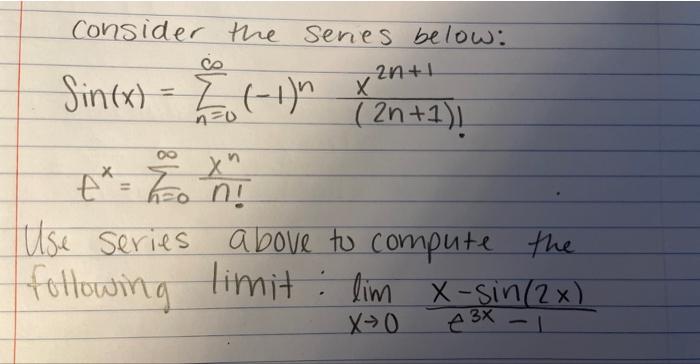 Consider the series below:
Sin(x) = ∞∑n=0 (-1)^n x^(2n+1)/(2n+1)!
e^x = ∞∑n=0 x^n/n!
Use series above to compute the
following limit : lim x→0 (x-sin(2x))/(e^(3x) - 1)